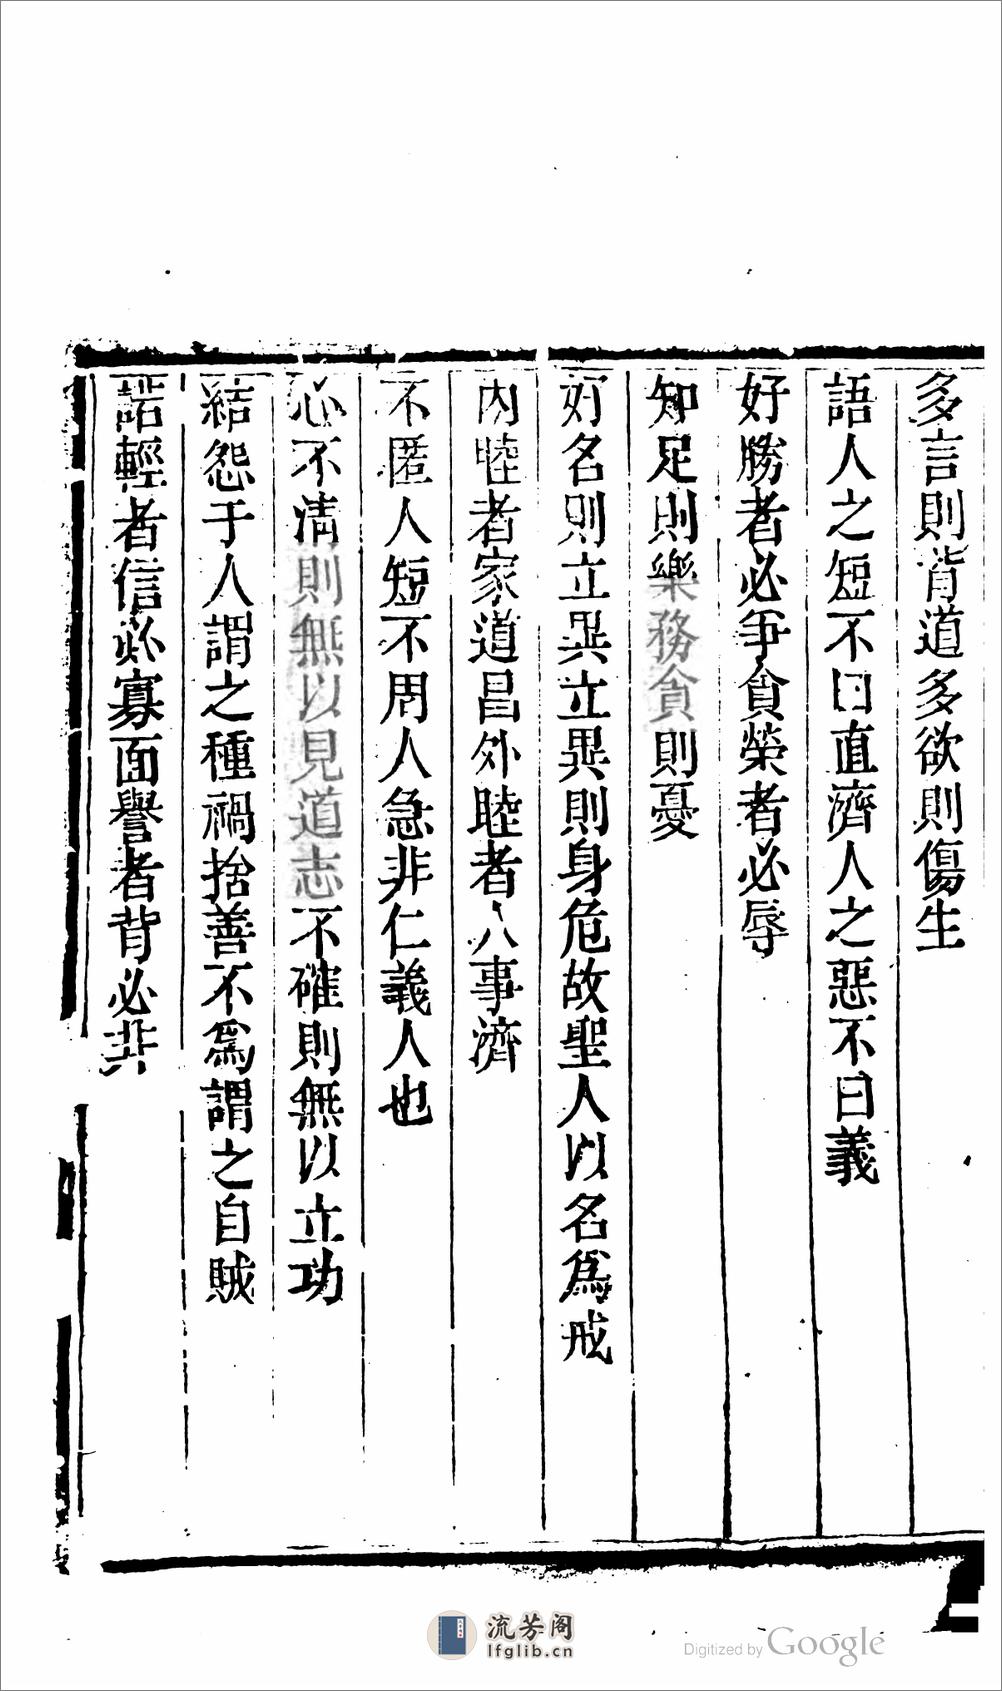 多言則背道多欲則傷生
語人之短不曰直濟人之惡不曰義
好勝者必爭貪榮者必辱
知足則樂務貪則憂
好名則立異立異則身危故聖人以名爲戒
內睦者家道昌外睦者人事濟
不匿人短不周人急非仁義人也
心不清則無以見道志不確則無以立功
結怨于人謂之種禍捨善不爲謂之自賊
諾輕者信必寡面譽者背必非
流芳阁
lfglib.cn
Digitized by Google